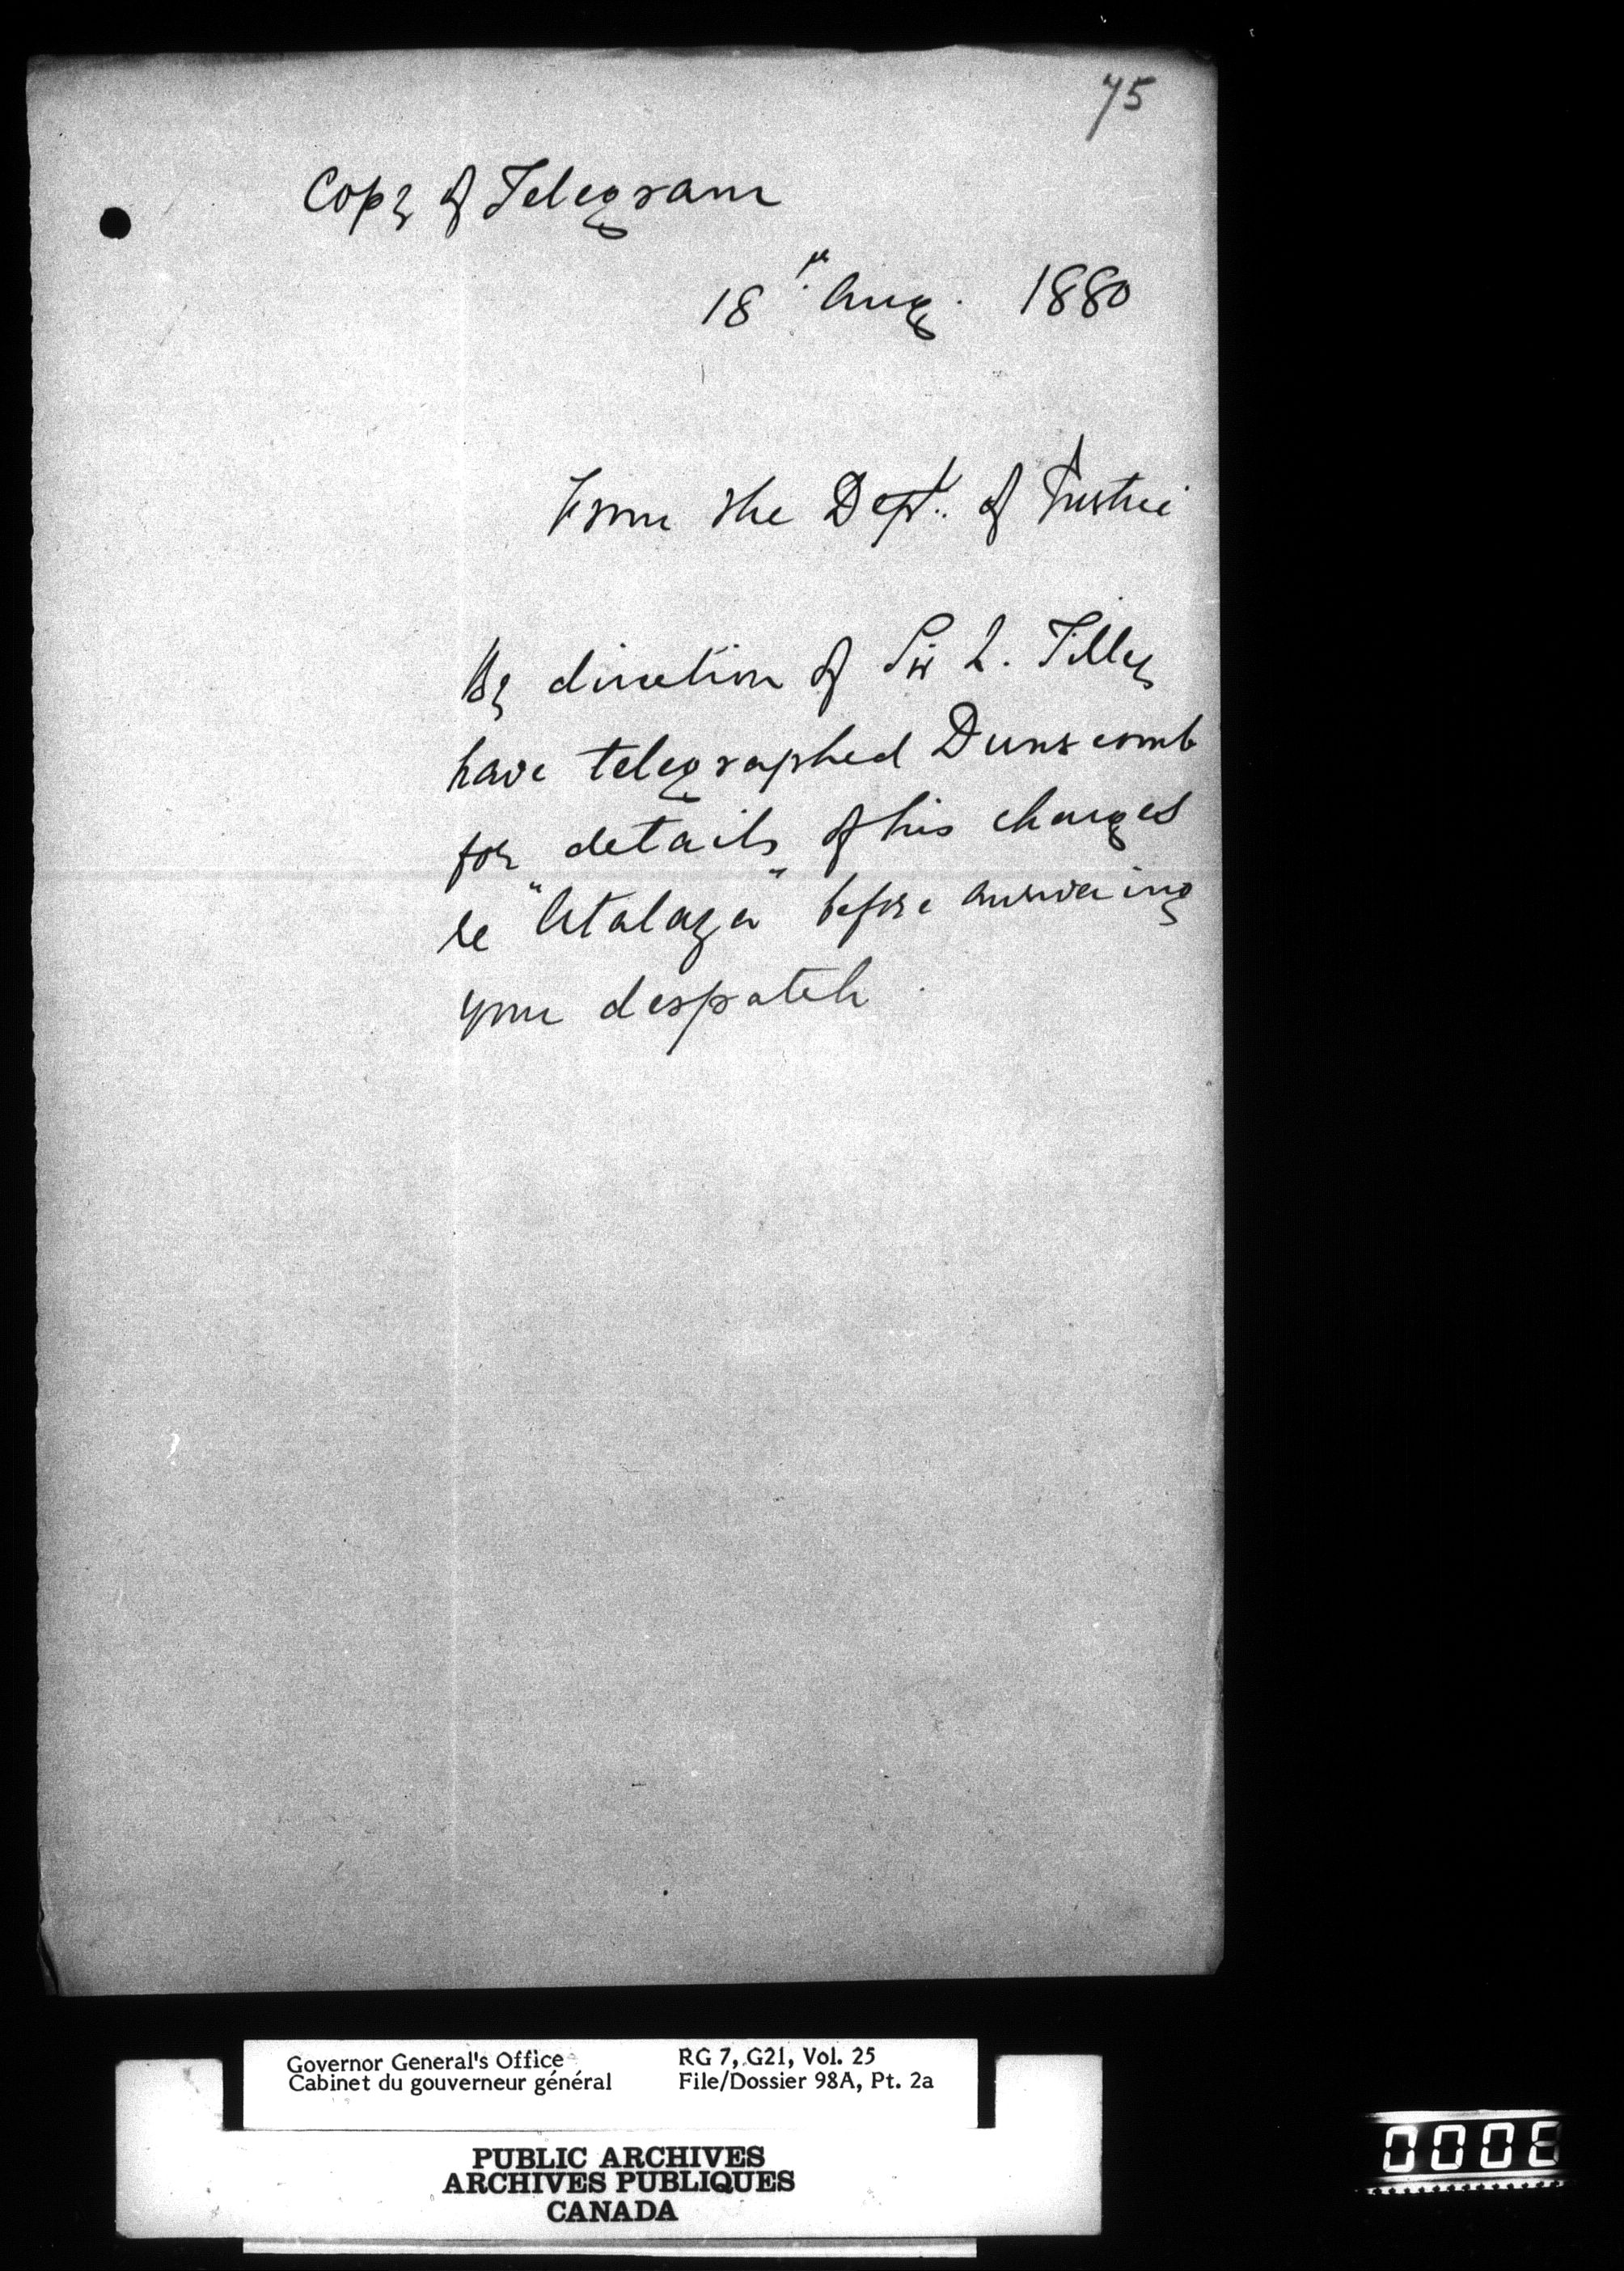 75
Copy of Telegram
18th Aug. 1880
From the Dept. of Justice
By direction of Sir L. Tilley
have telegraphed Dunscomb
for details of his charges
re "Atalaya" before answering
your despatch.
Governor General's Office RG 7, G21, Vol. 25
Cabinet du gouverneur général File/Dossier 98A, Pt. 2a
PUBLIC ARCHIVES
ARCHIVES PUBLIQUES
CANADA